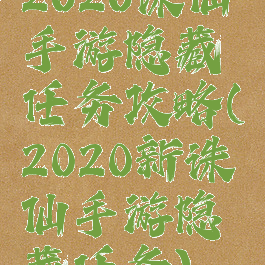 2020诛仙
手游隐藏
任务攻略(
2020新诛
仙手游隐
藏任务)